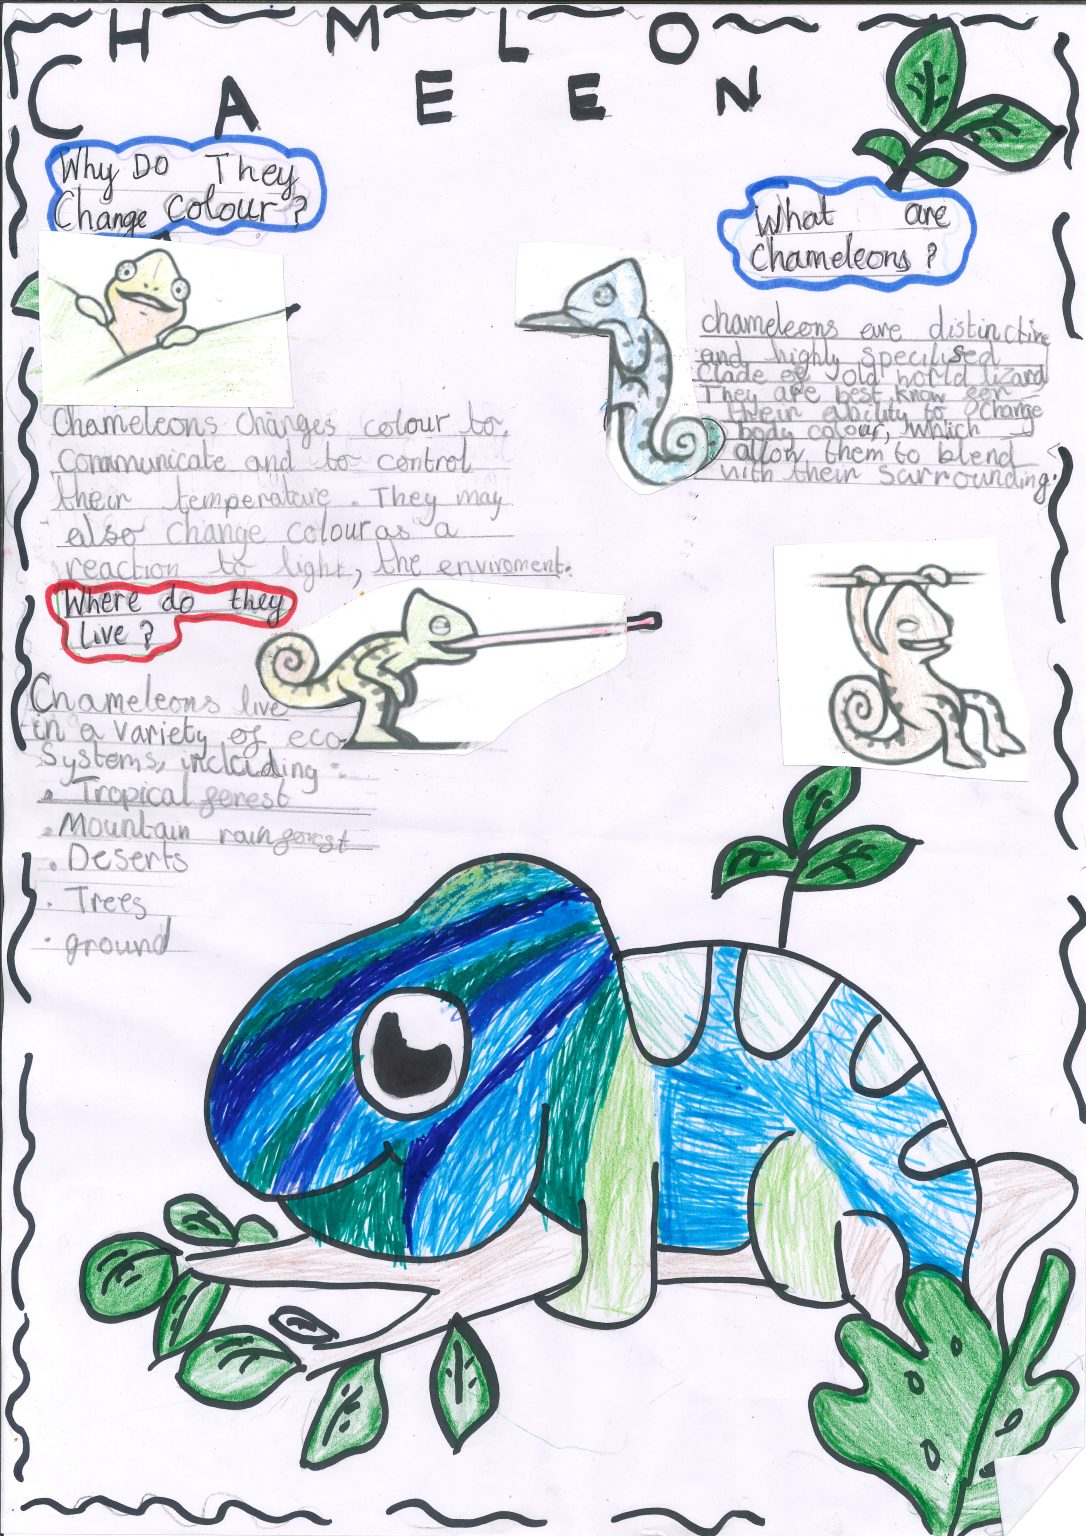 CHAMELEON
Why Do They
Change colour?
Chameleons changes colour to
communicate and to control
their temperature. They may
also change colour as a
reaction to light, the enviroment.
What are
Chameleons?
chameleons are distinctive
and highly specilised
Clade of old world lizard
They are best know for
their ability to change
body colour, which
allow them to blend
with their surrounding.
Where do they
Live?
Chameleons live
in a variety of eco
Systems, including:
• Tropical forest
• Mountain rainforest
• Deserts
• Trees
• ground